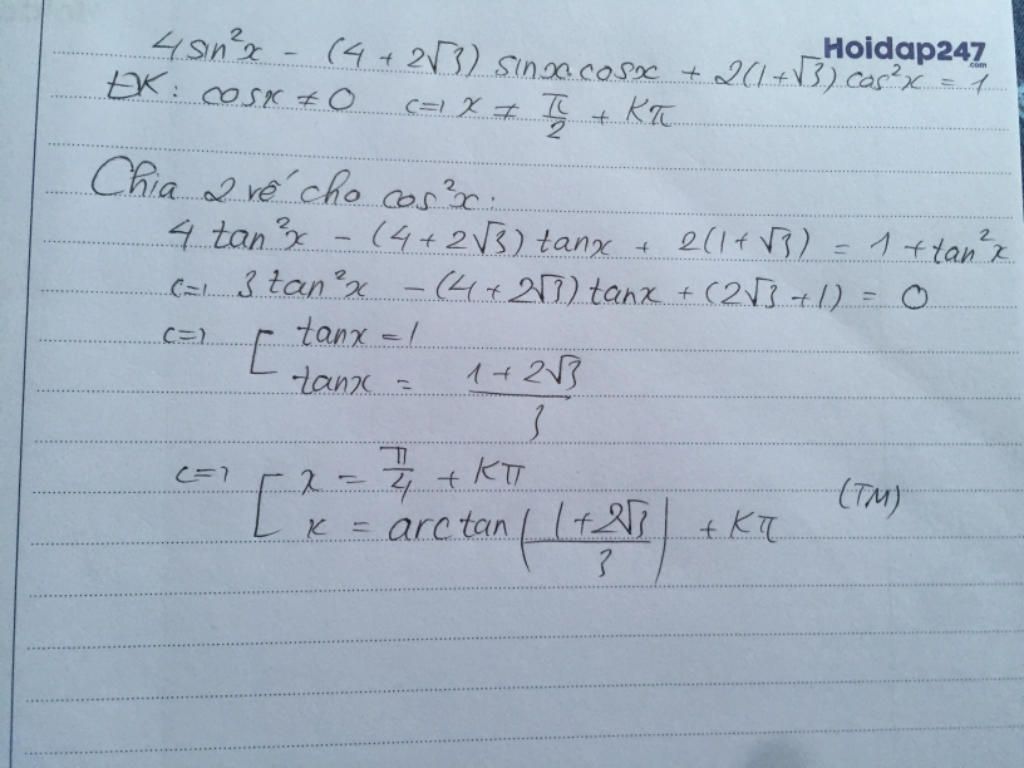 Hoidap247
.com
4sin²x - (4 + 2√3) sinx.cosx + 2(1+√3) cos²x = 1
ĐK: cosx ≠ 0 <=> x ≠ π/2 + Kπ
Chia 2 vế cho cos²x:
4 tan²x - (4+2√3) tanx + 2(1+√3) = 1 + tan²x
<=> 3 tan²x - (4+2√3) tanx + (2√3+1) = 0
<=> [ tanx = 1
tanx = (1+2√3)/3
<=> [ x = π/4 + Kπ
x = arctan((1+2√3)/3) + Kπ (TM)